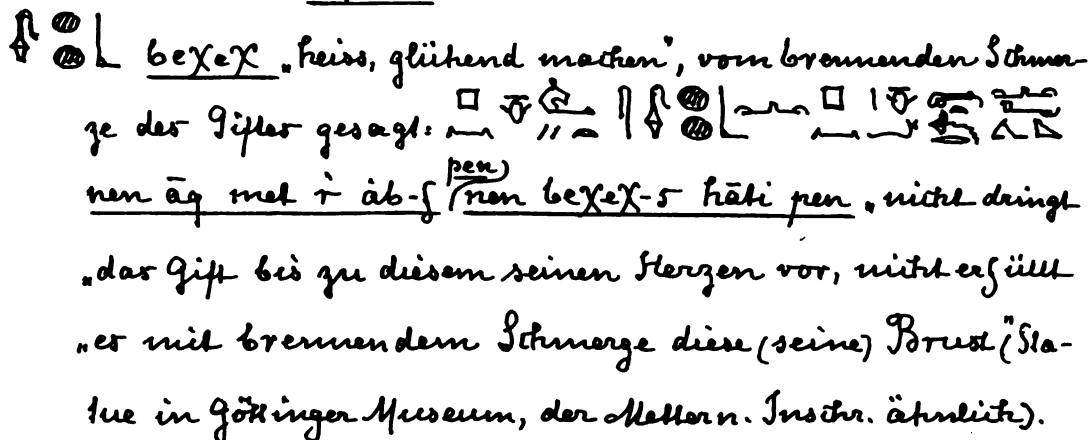 beχeχ „heiss, glühend machen“, vom brennenden Schmer-
ze des Giftes gesagt:
nen āq met r àb-f pen) nen beχeχ-s hāti pen „nicht dringt
„das Gift bis zu diesem seinen Herzen vor, nicht erfüllt
„es mit brennendem Schmerze diese (seine) Brust“ (Sta-
tue in Göttinger Museum, der Mettern. Inschr. ähnlich).